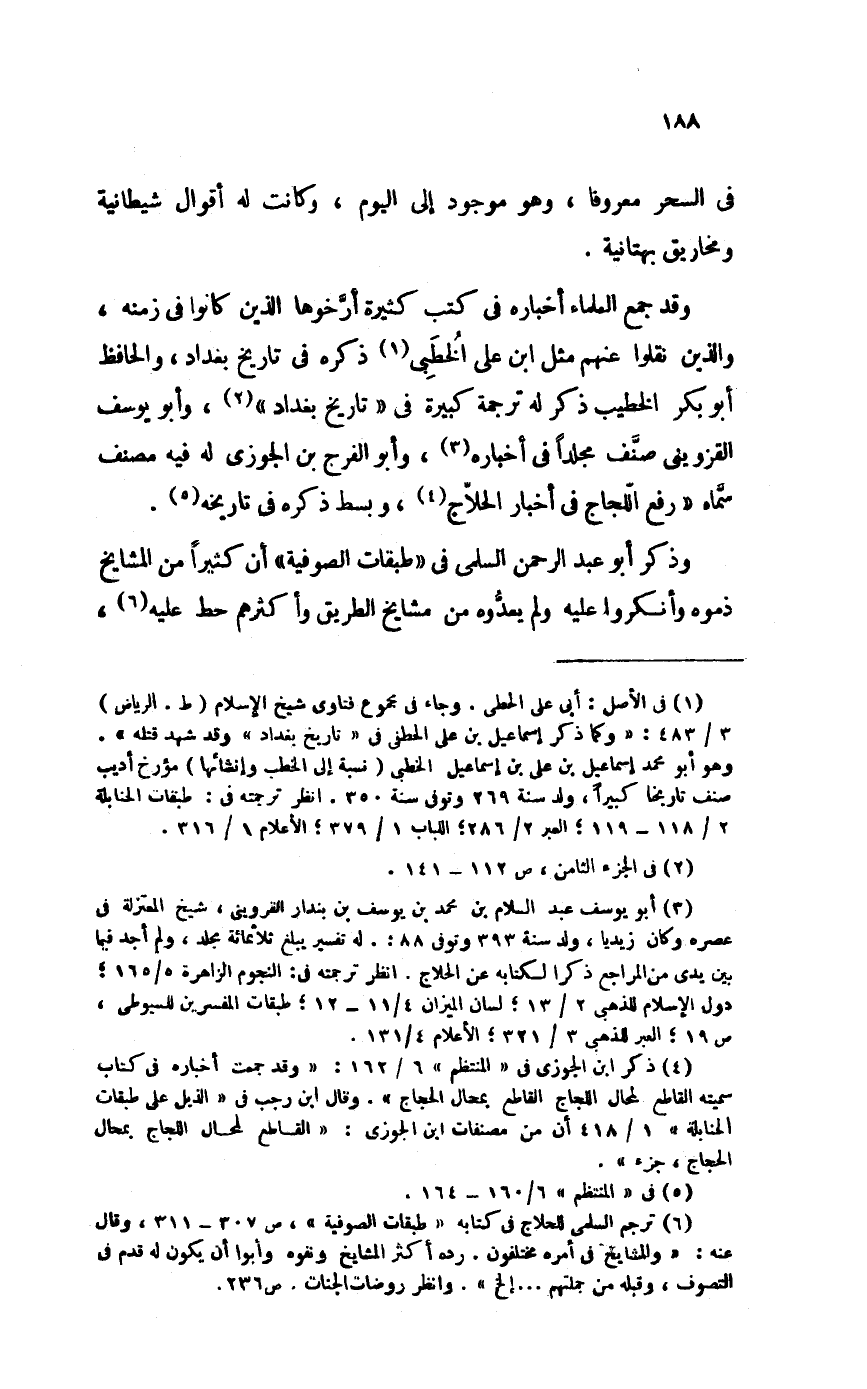 ١٨٨
فى السحر معروفا ، وهو موجود إلى اليوم ، وكانت له أقوال شيطانية
ومخاريق بهتانية .
وقد جمع العلماء أخباره فى كتب كثيرة أرَّخوها الذين كانوا فى زمنه ،
والذين نقلوا عنهم مثل ابن على الخُطَبِى(١) ذكره فى تاريخ بغداد ، والحافظ
أبو بكر الخطيب ذكر له ترجمة كبيرة فى « تاريخ بغداد »(٢) ، وأبو يوسف
القزوينى صنَّف مجلداً فى أخباره(٣) ، وأبو الفرج بن الجوزى له فيه مصنف
سمَّاه « رفع اللّجاج فى أخبار الحلاّج(٤) ، وبسط ذكره فى تاريخه(٥) .
وذكر أبو عبد الرحمن السلمى فى «طبقات الصوفية» أن كثيراً من المشايخ
ذموه وأنكروا عليه ولم يعدُّوه من مشايخ الطريق وأكثرهم حط عليه(٦) ،
(١) فى الأصل : أبى على الحطى . وجاء فى مجموع فتاوى شيخ الإسلام ( ط . الرياض )
٣ / ٤٨٣ : « وكما ذكر إسماعيل بن على الحطفى فى « تاريخ بغداد » وقد شهد قتله » .
وهو أبو محمد إسماعيل بن على بن إسماعيل الخطبى ( نسبة إلى الخطب وإنشائها ) مؤرخ أديب
صنف تاريخا كبيراً ، ولد سنة ٢٦٩ وتوفى سنة ٣٥٠ . انظر ترجمته فى : طبقات الحنابلة
٢ / ١١٨ – ١١٩ ؛ العبر ٢/ ٢٨٦؛ اللباب ١ / ٣٧٩ ؛ الأعلام ١ / ٣١٦ .
(٢) فى الجزء الثامن ، ص ١١٢ – ١٤١ .
(٣) أبو يوسف عبد السلام بن محمد بن يوسف بن بندار القزوينى ، شيخ المعتزلة فى
عصره وكان زيديا ، ولد سنة ٣٩٣ وتوفى ٨٨: . له تفسير يبلغ ثلاثمائة مجلد ، ولم أجد فيما
بين يدى من المراجع ذكرا لكتابه عن الحلاج . انظر ترجمته فى: النجوم الزاهرة ١٦٥/٥ ؛
دول الإسلام للذهبى ٢ / ١٣ ؛ لسان الميزان ١١/٤ – ١٢ ؛ طبقات المفسرين للسيوطى ،
ص ١٩ ؛ العبر للذهبى ٣ / ٣٢١ ؛ الأعلام ١٣١/٤ .
(٤) ذكر ابن الجوزى فى « المنتظم » ٦ / ١٦٢ : « وقد جمعت أخباره فى كتاب
سميته القاطع لمحال اللجاج القاطع بمحال الحجاج » . وقال ابن رجب فى « الذيل على طبقات
الحنابلة » ١ / ٤١٨ أن من مصنفات ابن الجوزى : « القاطع لمحال اللجاج بمحال
الحجاج ، جزء » .
(٥) فى « المنتظم » ١٦٠/٦ – ١٦٤ .
(٦) ترجم السلمى للحلاج فى كتابه « طبقات الصوفية » ، ص ٣٠٧ – ٣١١ ، وقال
عنه : « والمشايخ فى أمره مختلفون . رده أكثر المشايخ ونفوه وأبوا أن يكون له قدم فى
التصوف ، وقبله من جملتهم ...إلخ » . وانظر روضات الجنات . ص٢٣٦.